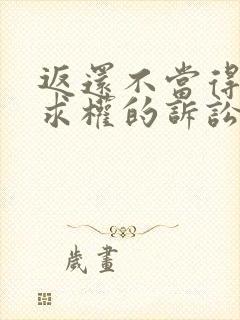 返還不當得
求權的訴訟
歲畫